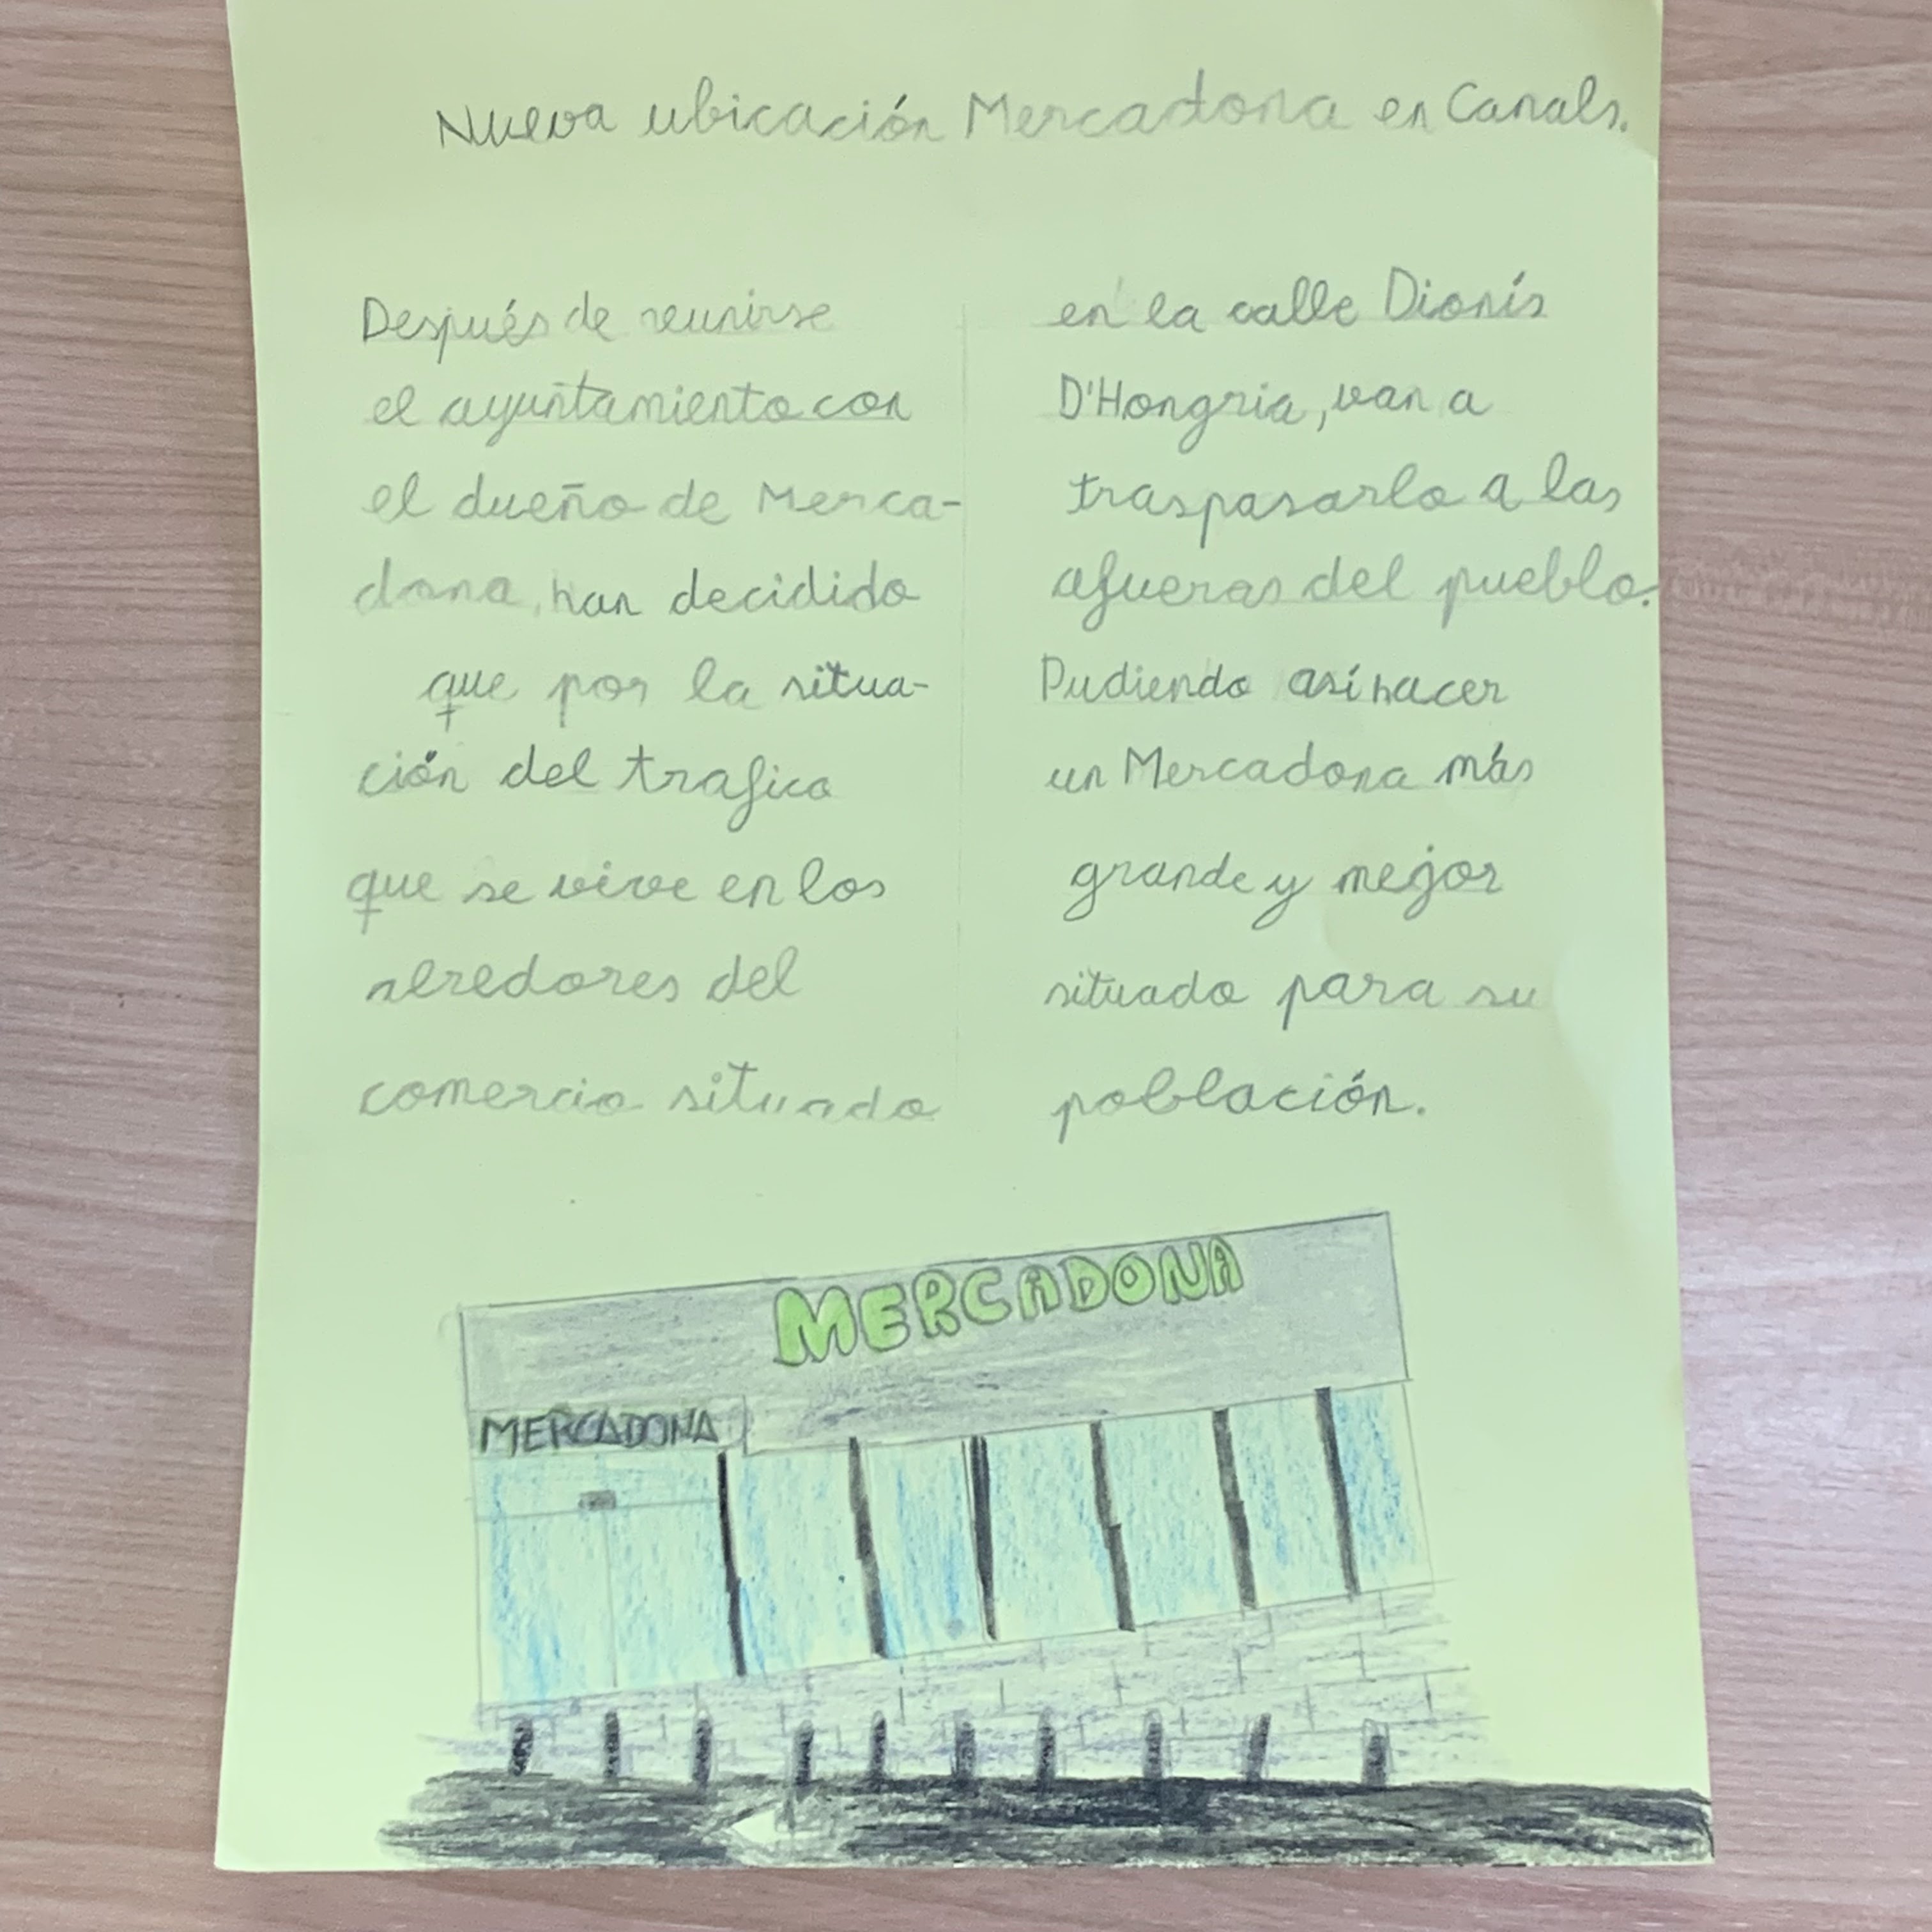 Nueva ubicación Mercadona en Canals.
Después de reunirse
el ayuntamiento con
el dueño de Merca-
dona, han decidido
que por la situa-
ción del trafico
que se vive en los
alredores del
comercio situado
en la calle Dionís
D'Hongria, van a
traspasarlo a las
afueras del pueblo.
Pudiendo así hacer
un Mercadona más
grande y mejor
situado para su
población.
MERCADONA
MERCADONA